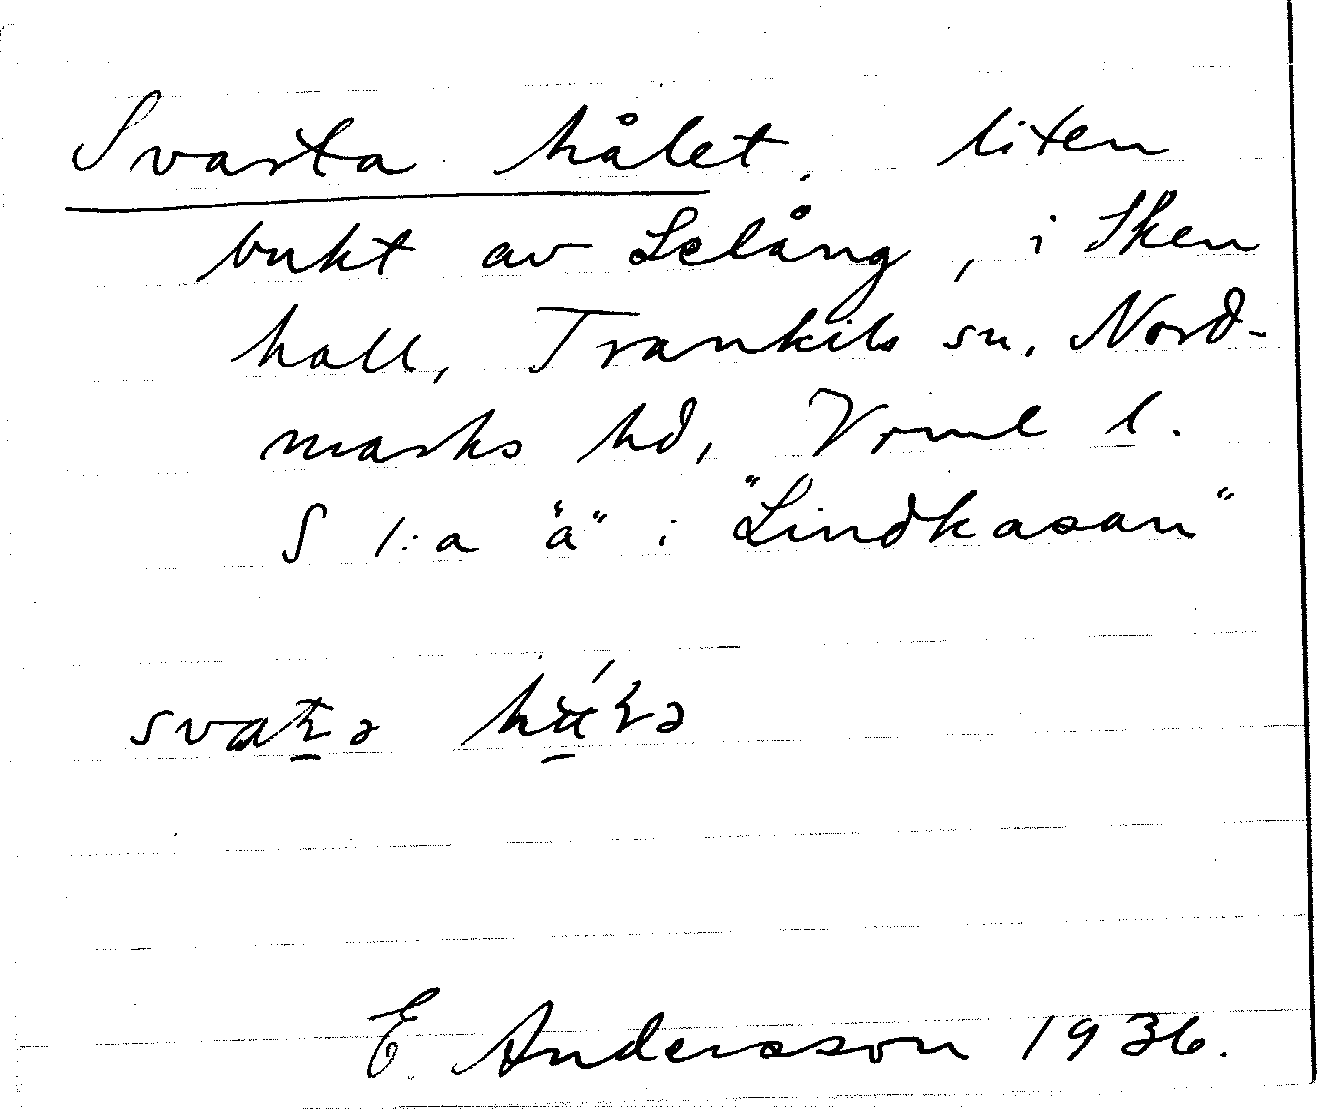 Svarta hålet, liten
bukt av Lelång, i Sken
hall, Trankils sn, Nord-
marks hd, Vrml l.
S 1:a "a" i "Lindkasan"
E. Andersson 1936.